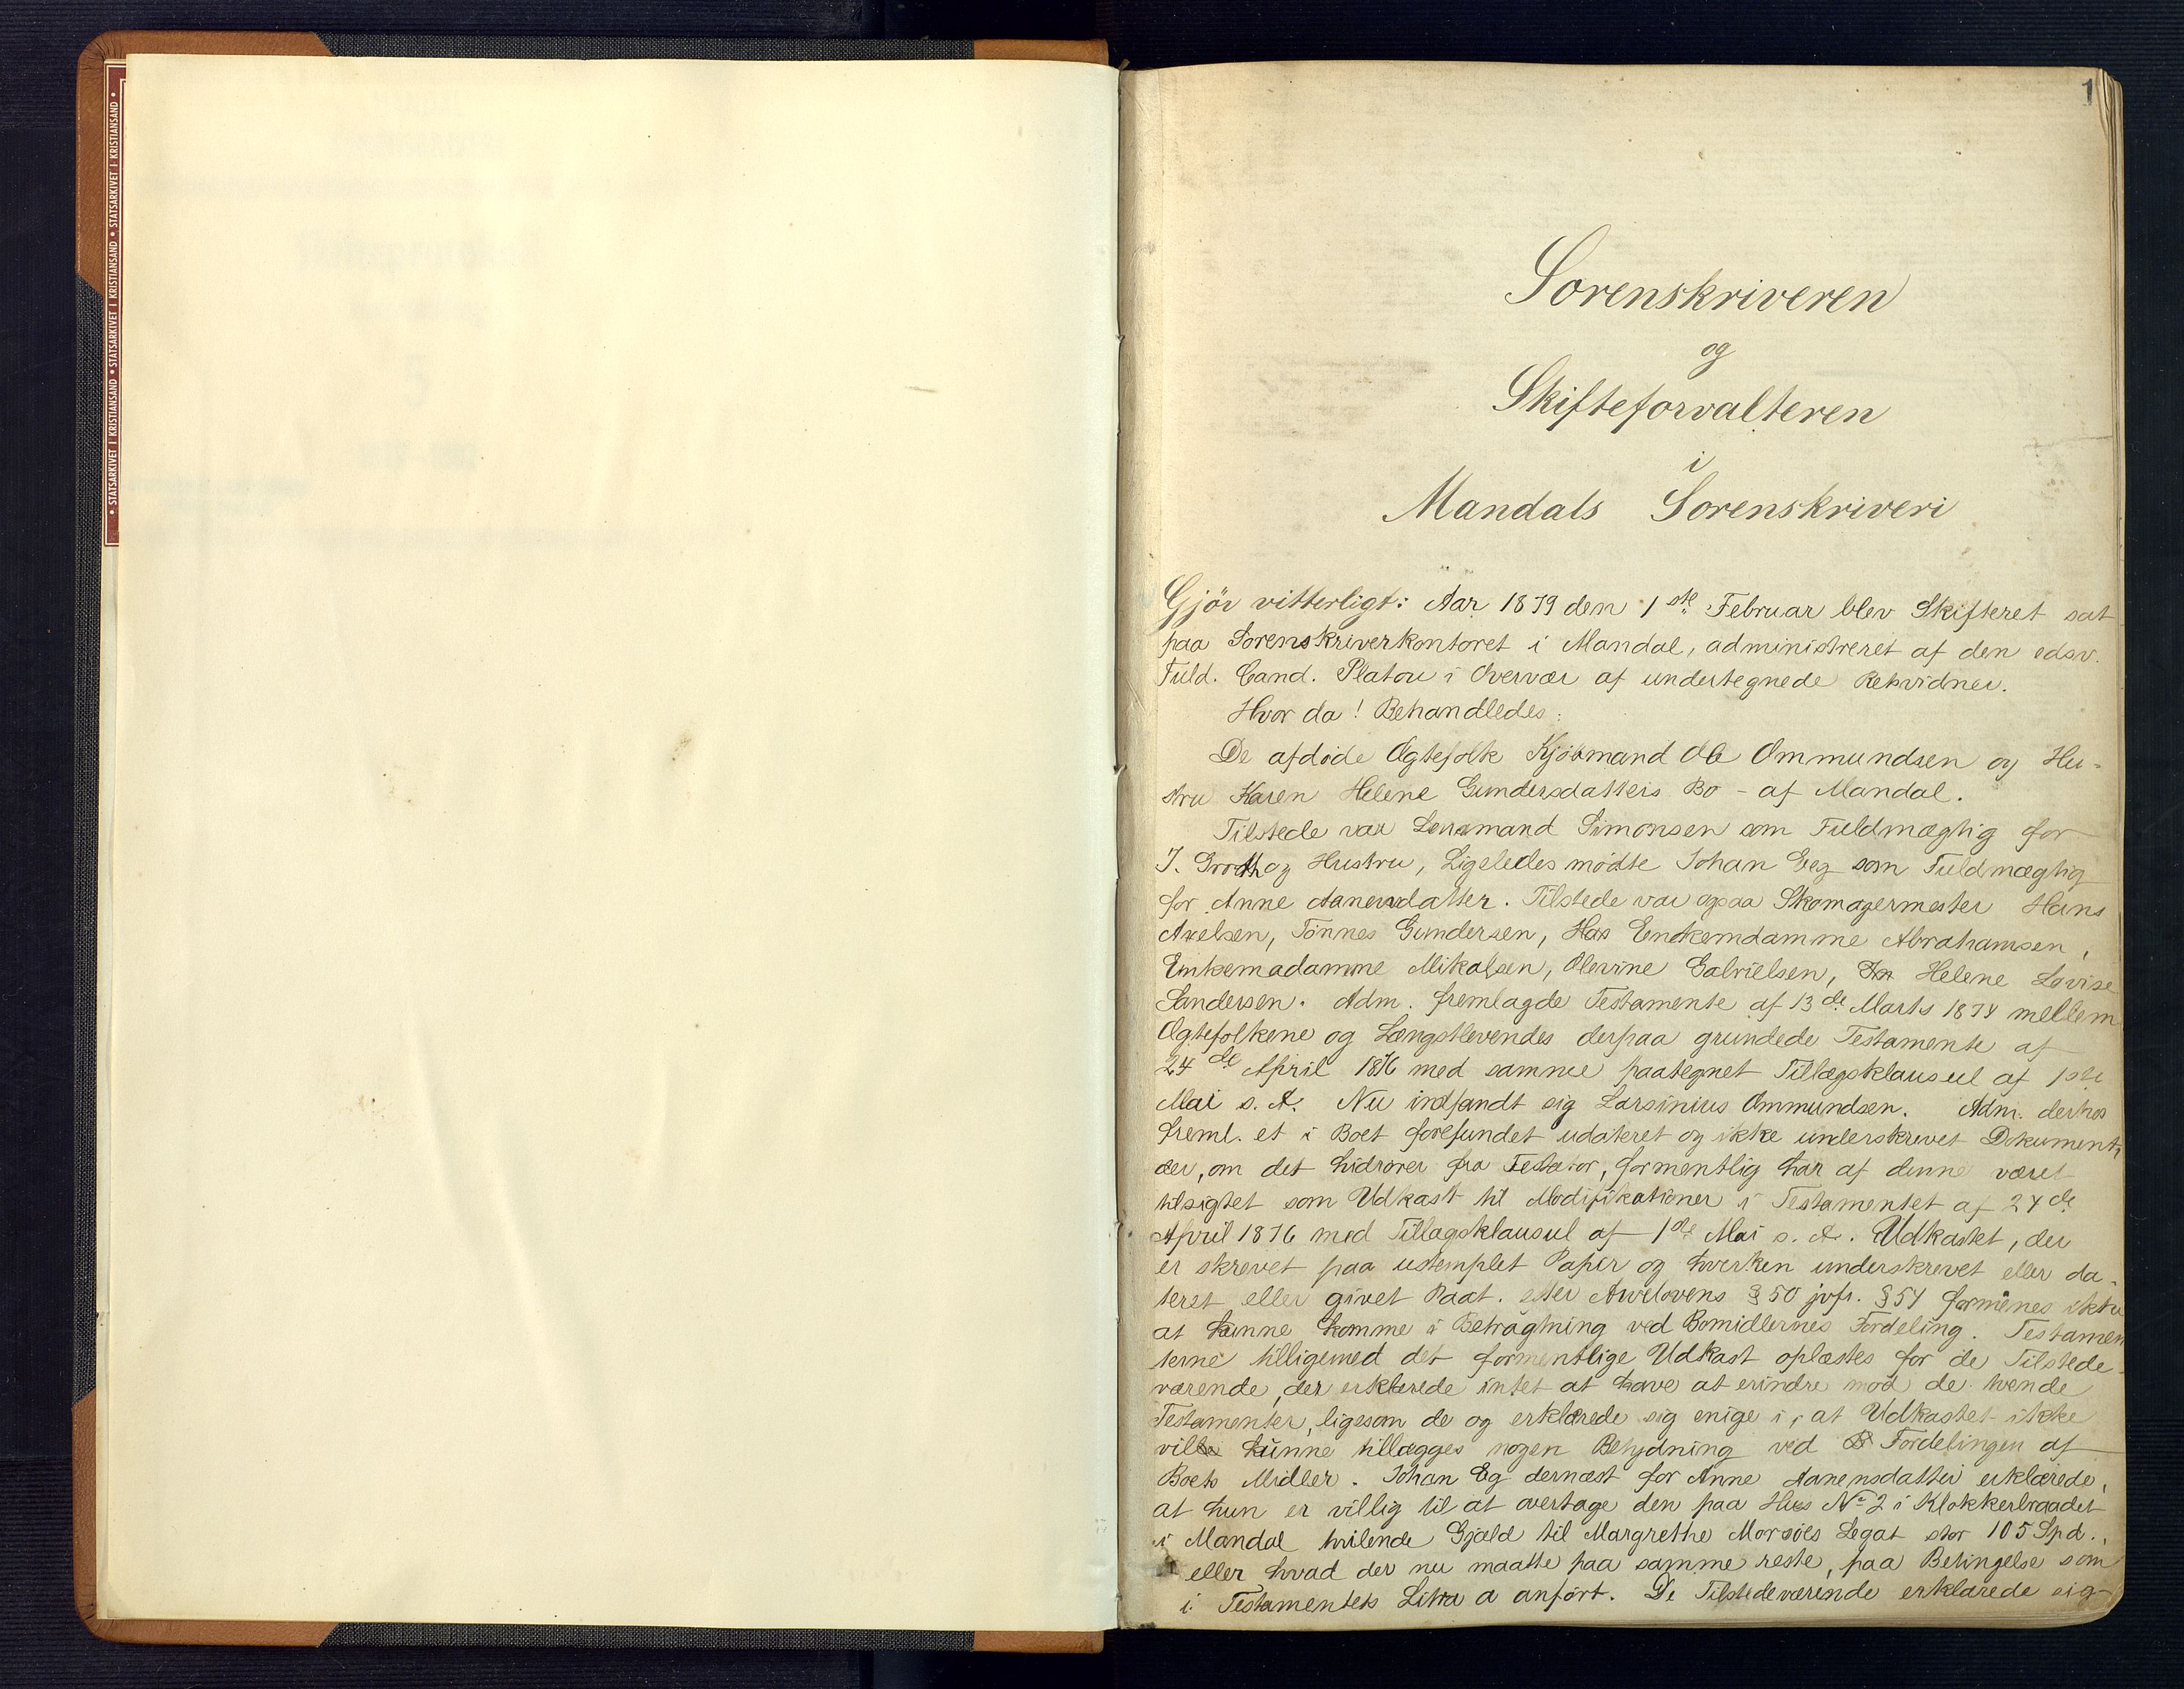 • STATSARKIVET I KRISTIANSAND • STATSARKIVET I KRISTIANSAND • STATSARKIVET I KRISTIANSAND •
1
Sorenskriveren
og
Skifteforvalteren
i
Mandals Sorenskriveri
Gjör vitterligt: Aar 1879 den 1ste Februar blev Skifteret sat
paa Sorenskriverkontoret i Mandal, administreret af den edsv.
Fuld. Cand. Platou i Overvær af undertegnede Retsvidner.
Hvor da! Behandledes:
De afdøde Ægtefolk Kjøbmand Ole Ommundsen og Hu-
stru Karen Helene Gundersdatters Bo - af Mandal.
Tilstede var Lensmand Simonsen som Fuldmægtig for
J. Groth og Hustru, Ligeledes mødte Johan Eeg som Fuldmægtig
for Anne Aanensdatter. Tilstede var ogsaa Skomagermester Hans
Axelsen, Tönnes Gundersen, Enkemdamme Abrahamsen,
Enkemadamme Mikalsen, Olevine Gabrielsen, Helene Lovise
Sandersen. Adm. fremlagde Testamente af 13de Marts 1874 mellem
Ægtefolkene og Længstlevendes derpaa grundede Testamente af
24de April 1876 med samme paategnet Tillægsklausul af 1ste
Mai s. A. Nu indfandt sig Larsinius Ommundsen. Adm. derhos
freml. et i Boet forefundet udateret og ikke underskrevet Dokument,
der, om det hidrører fra Testator, formentlig har af denne været
tilsigtet som Udkast til Modifikationer i Testamentet af 24de
April 1876 med Tillægsklausul af 1ste Mai s. A. Udkastet, der
er skrevet paa ustemplet Papir og hverken underskrevet eller da-
teret eller givet Paat. efter Arvelovens § 50 jvfr. § 54 formenes ikke
at kunne komme i Betragtning ved Bomidlernes Fordeling. Testamen
terne tilligemed det formentlige Udkast oplæstes for de Tilstede-
værende, der erklærede intet at have at erindre mod de tvende
Testamenter, ligesom de og erklærede sig enige i, at Udkastet ikke
vilde kunne tillægges nogen Betydning ved Fordelingen af
Boets Midler. Johan Eg dernæst for Anne Aanensdatter erklærede,
at hun er villig til at overtage den paa Hus No 2 i Klokkerbraadet
i Mandal hvilende Gjæld til Margrethe Legat stor 105 Spd.,
eller hvad der nu maatte paa samme reste, paa Betingelse som
i Testamentets Litra a anført. De Tilstedeværende erklærede sig